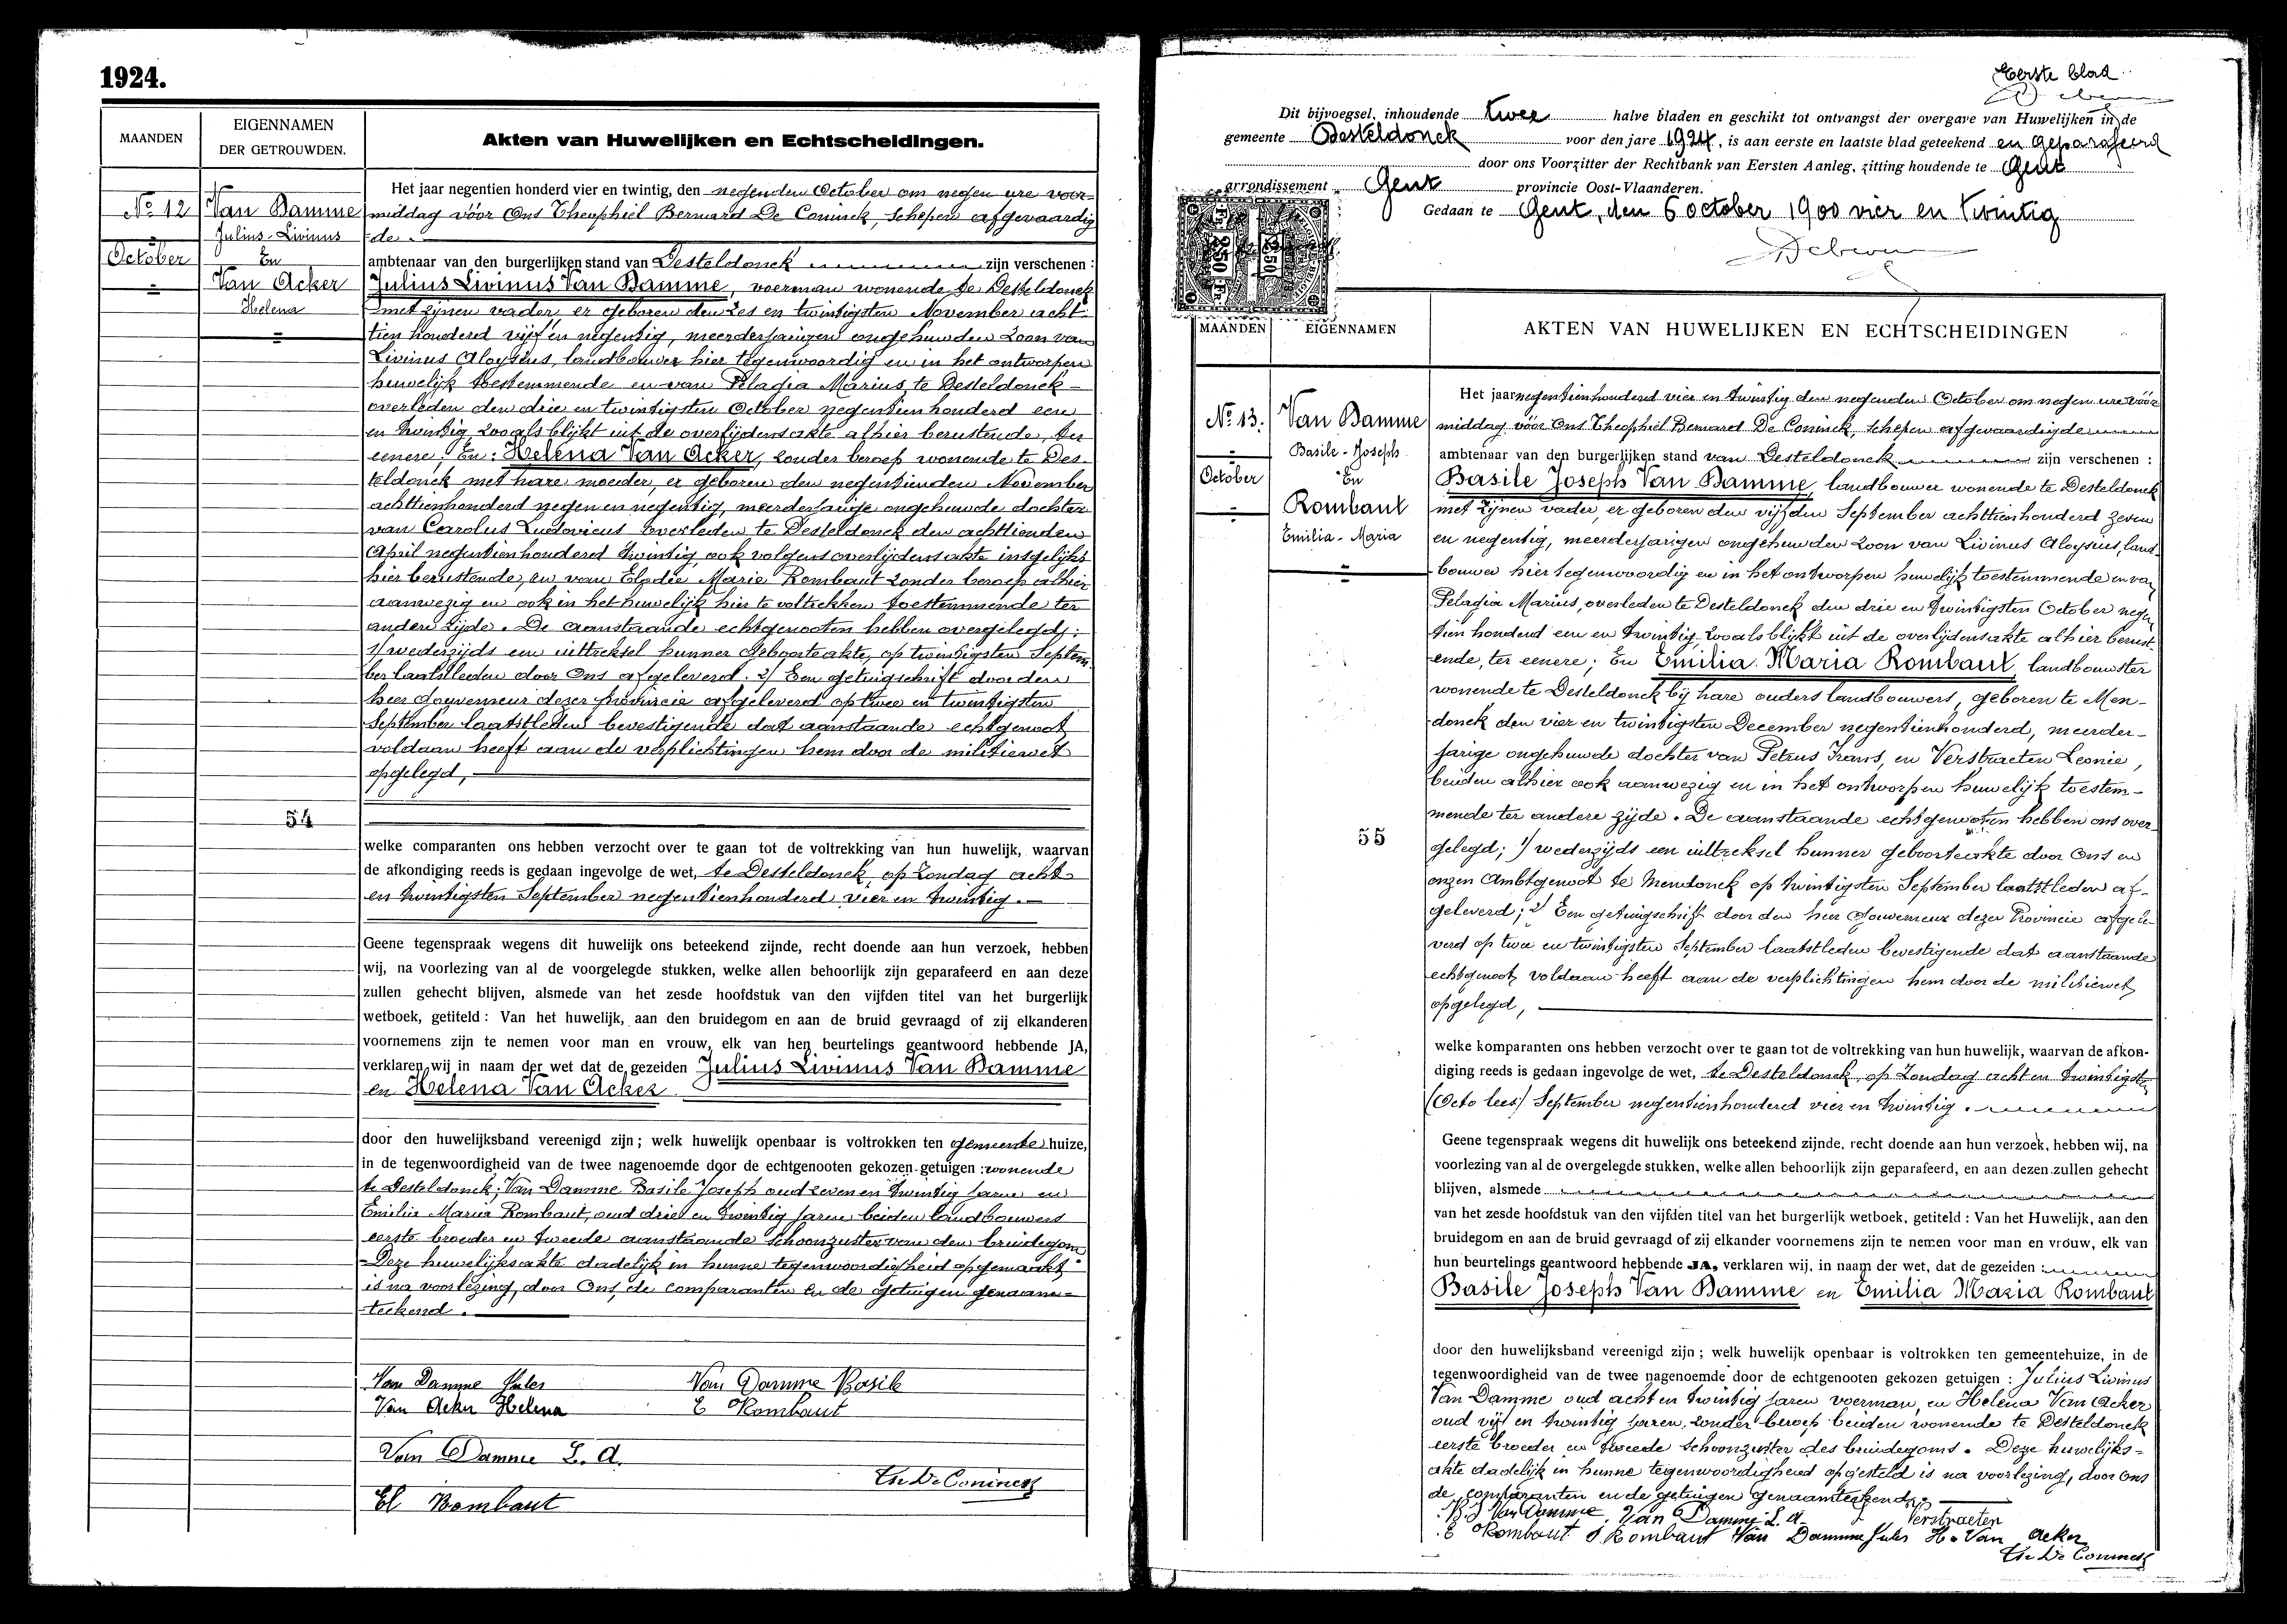 1924.
MAANDEN
EIGENNAMEN
DER GETROUWDEN.
Akten van Huwelijken en Echtscheidingen.
No 12
October
Van Damme
Julius-Livinus
En
Van Acker
Helena
54
Het jaar negentien honderd vier en twintig, den negenden October om negen ure voor-
middag vóór Ons Theophiel Bernard De Coninck, schepen afgevaardig
de
ambtenaar van den burgerlijken stand van Desteldonck zijn verschenen :
Julius Livinus Van Damme, voerman wonende te Desteldonck
met zijnen vader, er geboren den zes en twintigsten November acht
tien honderd vijf en negentig, meerderjarigen ongehuwden zoon van
Livinus Aloysius, landbouwer hier tegenwoordig en in het ontworpen
huwelijk toestemmende en van Pelagia Marius, te Desteldonck
overleden den drie en twintigsten October negentien honderd een
en twintig zooals blijkt uit de overlijdensakte alhier berustende, ter
eenere; En: Helena Van Acker, zonder beroep wonende te Des-
teldonck met hare moeder, er geboren den negentienden November
achttienhonderd negen en negentig, meerderjarige ongehuwde dochter
van Carolus Ludovicus overleden te Desteldonck den achttienden
April negentienhonderd twintig, ook volgens overlijdensakte insgelijks
hier berustende, en van Elodie Marie Rombaut zonder beroep alhier
aanwezig en ook in het huwelijk hier te voltrekken toestemmende ter
andere zijde. De aanstaande echtgenooten hebben overgelegd;
1/ wederzijds een uittreksel hunner geboorteakte, op twintigsten Septem-
ber laatstleden door Ons afgeleverd. 2/ Een getuigschrift door den
heer Gouverneur dezer provincie afgeleverd op twee en twintigsten
September laatstleden bevestigende dat aanstaande echtgenoot
voldaan heeft aan de verplichtingen hem door de militiewet
opgelegd,
welke comparanten ons hebben verzocht over te gaan tot de voltrekking van hun huwelijk, waarvan
de afkondiging reeds is gedaan ingevolge de wet, te Desteldonck, op Zondag acht
en twintigsten September negentienhonderd vier en twintig.
Geene tegenspraak wegens dit huwelijk ons beteekend zijnde, recht doende aan hun verzoek, hebben
wij, na voorlezing van al de voorgelegde stukken, welke allen behoorlijk zijn geparafeerd en aan deze
zullen gehecht blijven, alsmede van het zesde hoofdstuk van den vijfden titel van het burgerlijk
wetboek, getiteld : Van het huwelijk, aan den bruidegom en aan de bruid gevraagd of zij elkanderen
voornemens zijn te nemen voor man en vrouw, elk van hen beurtelings geantwoord hebbende JA,
verklaren wij in naam der wet dat de gezeiden Julius Livinus Van Damme
en Helena Van Acker
door den huwelijksband vereenigd zijn ; welk huwelijk openbaar is voltrokken ten gemeente huize,
in de tegenwoordigheid van de twee nagenoemde door de echtgenooten gekozen getuigen : wonende
te Desteldonck; Van Damme Basile Joseph oud zeven en twintig jaren en
Emilia Maria Rombaut, oud drie en twintig jaren beiden landbouwers
eerste broeder en tweede aanstaande schoonzuster van den bruidegom
Deze huwelijksakte dadelijk in hunne tegenwoordigheid opgemaakt
is na voorlezing, door Ons, de comparanten en de getuigen genaam-
teekend.
Van Damme Jules
Van Damme Basile
Van Acker Helena
E Rombaut
Van Damme L. A.
Th De Coninck
El Rombaut
Eerste blad
Dit bijvoegsel, inhoudende twee halve bladen en geschikt tot ontvangst der overgave van Huwelijken in de
gemeente Desteldonck voor den jare 1924, is aan eerste en laatste blad geteekend en geparafeerd
door ons Voorzitter der Rechtbank van Eersten Aanleg, zitting houdende te Gent
arrondissement Gent provincie Oost-Vlaanderen.
Gedaan te Gent, den 6 october 1900 vier en twintig
MAANDEN
EIGENNAMEN
AKTEN VAN HUWELIJKEN EN ECHTSCHEIDINGEN
No 13.
October
Van Damme
Basile-Joseph
En
Rombaut
Emilia-Maria
55
Het jaar negentienhonderd vier en twintig den negenden October om negen ure vóór
middag vóór Ons Theophiel Bernard De Coninck, schepen afgevaardigde
ambtenaar van den burgerlijken stand van Desteldonck zijn verschenen :
Basile Joseph Van Damme, landbouwer wonende te Desteldonck
met zijnen vader, er geboren den vijfden September achttienhonderd zeven
en negentig, meerderjarigen ongehuwden zoon van Livinus Aloysius, land-
bouwer hier tegenwoordig en in het ontworpen huwelijk toestemmende en van
Pelagia Marius, overleden te Desteldonck den drie en twintigsten October negen
tien honderd een en twintig, zooals blijkt uit de overlijdensakte alhier berust-
ende, ter eenere; En Emilia Maria Rombaut, landbouwster
wonende te Desteldonck bij hare ouders landbouwers, geboren te Men-
donck den vier en twintigsten December negentienhonderd, meerder-
jarige ongehuwde dochter van Petrus Frans, en Verstraeten Leonie,
beiden alhier ook aanwezig en in het ontworpen huwelijk toestem-
mende ter andere zijde. De aanstaande echtgenooten hebben ons over-
gelegd; 1/ wederzijds een uittreksel hunner geboorteakte door Ons en
onzen Ambtgenoot te Mendonck op twintigsten September laatstleden af-
geleverd; 2/ Een getuigschrift door den heer Gouverneur dezer Provincie afgele-
verd op twee en twintigsten September laatstleden bevestigende dat aanstaande
echtgenoot, voldaan heeft aan de verplichtingen hem door de militiewet
opgelegd,
welke komparanten ons hebben verzocht over te gaan tot de voltrekking van hun huwelijk, waarvan de afkon-
diging reeds is gedaan ingevolge de wet, te Desteldonck, op Zondag acht en twintigsten
(Octo lees) September negentienhonderd vier en twintig.
Geene tegenspraak wegens dit huwelijk ons beteekend zijnde, recht doende aan hun verzoek, hebben wij, na
voorlezing van al de overgelegde stukken, welke allen behoorlijk zijn geparafeerd, en aan dezen zullen gehecht
blijven, alsmede
van het zesde hoofdstuk van den vijfden titel van het burgerlijk wetboek, getiteld : Van het Huwelijk, aan den
bruidegom en aan de bruid gevraagd of zij elkander voornemens zijn te nemen voor man en vrouw, elk van
hun beurtelings geantwoord hebbende JA, verklaren wij, in naam der wet, dat de gezeiden :
Basile Joseph Van Damme en Emilia Maria Rombaut
door den huwelijksband vereenigd zijn ; welk huwelijk openbaar is voltrokken ten gemeentehuize, in de
tegenwoordigheid van de twee nagenoemde door de echtgenooten gekozen getuigen : Julius Livinus
Van Damme oud acht en twintig jaren voerman, en Helena Van Acker
oud vijf en twintig jaren, zonder beroep beiden wonende te Desteldonck
eerste broeder en tweede schoonzuster des bruidegoms. Deze huwelijks-
akte dadelijk in hunne tegenwoordigheid opgesteld is na voorlezing, door Ons
de comparanten en de getuigen genaamteekend;
B. J Van Damme. Van Damme L. A. Verstraeten
E Rombaut P Rombaut Van Damme Jules H. Van Acker
Th De Coninck